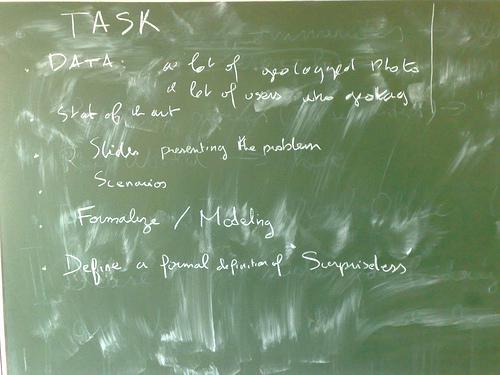 TASK
. DATA: a lot of geotagged Photo
a lot of users who geotag
. Stat of the art
. Slides presenting the problem
. Scenarios
. Formalize / Modeling
. Define a formal definition of Surpriseless